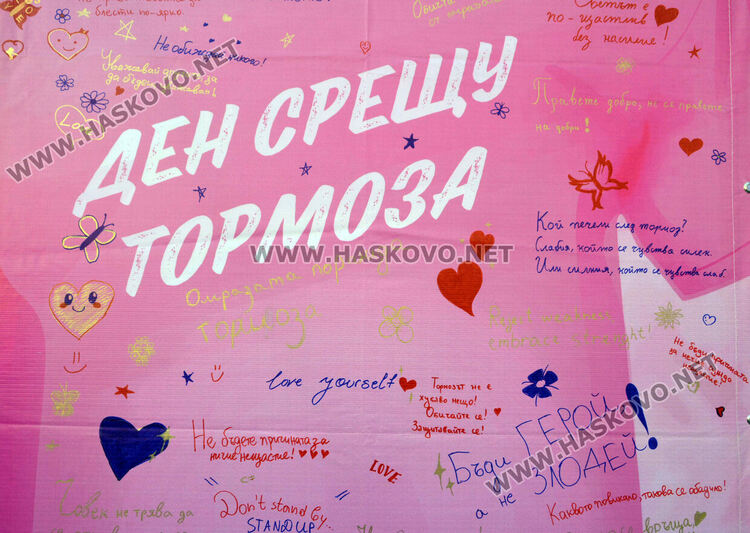 блести по-ярко.
Обичта
е
по-щастлив
без насилие!
Не обиждай никого!
Уважавай
за
да бъдеш
WWW.HASKOVO.NET
WWW.HASKOVO.NET
ДЕН СРЕЩУ
ТОРМОЗА
Правете добро, не се правете
на добри!
Кой печели след тормоз?
Слабия, който се чувства силен.
Или силния, който се чувства слаб.
WWW.HASKOVO.NET
Омразата поражда
тормоза
embrace
Не бъди причината
за нечия
love yourself
Тормозът не е
хубаво нещо!
Обичайте се!
Защитавайте се!
WWW.HASKOVO.NET
Бъди ГЕРОЙ,
а не ЗЛОДЕЙ!
Не бъдете причината за
ничие нещастие!
LOVE
Човек не трябва да
Don't stand by..
STAND UP
Каквото повикало, такова се обадило!
се връща